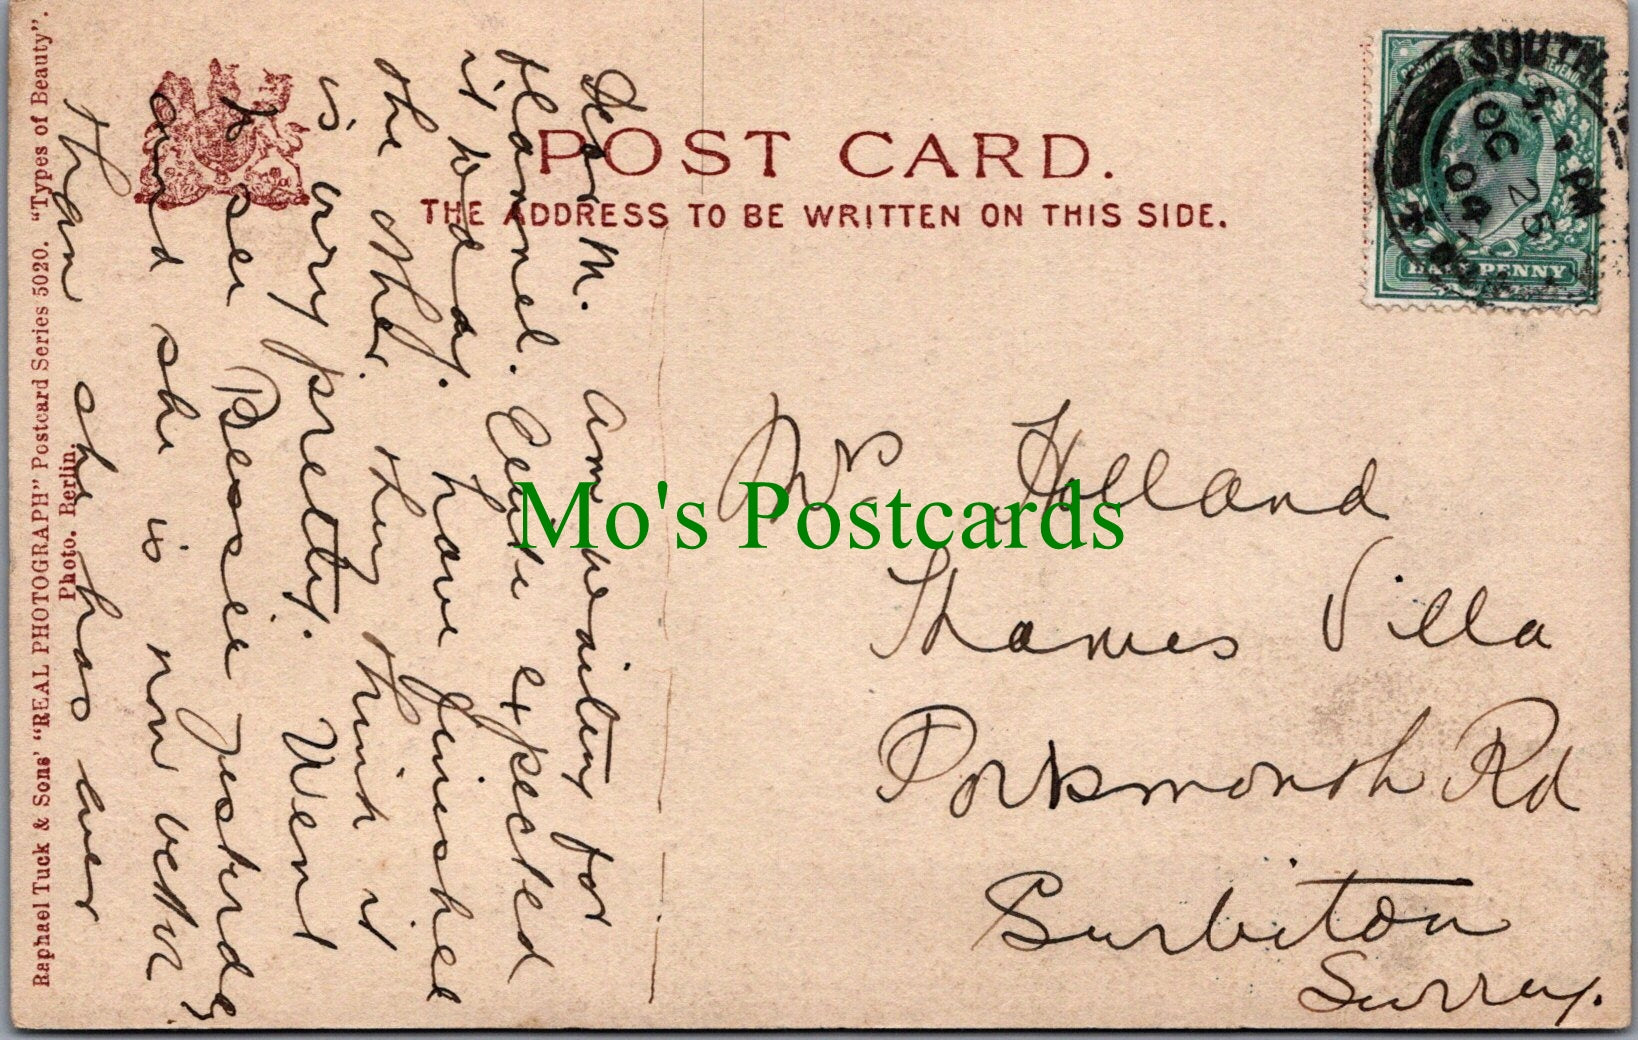 POST CARD.
THE ADDRESS TO BE WRITTEN ON THIS SIDE.
Raphael Tuck & Sons' "REAL PHOTOGRAPH" Postcard Series 5020. "Types of Beauty".
Photo. Berlin.
SOUTH
5. PM
OC 25
04
HALFPENNY
Dear M. am waiting for
flannel. expected
it today. have finished
the other. they think it
is very pretty. Went
to see Bessie yesterday
and she is now better
than she has ever
Mrs Holland
Thames Villa
Portsmouth Rd
Surbiton
Surrey.
Mo's Postcards